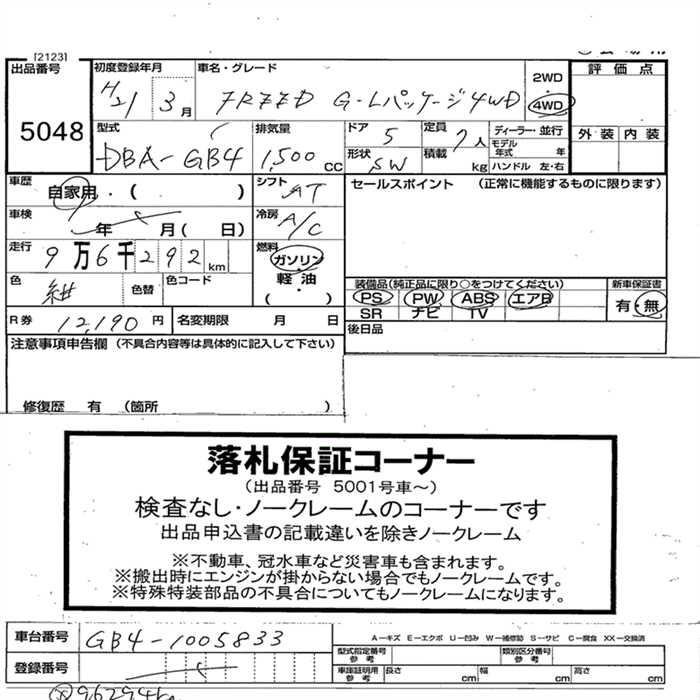 [2123]
出品番号
5048
初度登録年月
H21 3月
車名・グレード
FREED G-Lパッケージ4WD
2WD
4WD
評価点
外装 内装
型式
DBA-GB4
排気量
1,500 CC
ドア 5
形状 SW
定員 7人
積載 kg
ディーラー・並行
モデル年式 年
ハンドル 左・右
車歴
自家用・( )
シフト AT
セールスポイント (正常に機能するものに限ります)
車検
年 月( 日)
冷房 A/C
走行
9万6千292km
燃料
ガソリン
軽・油
( )
色
紺
色替
色コード
装備品(純正品に限り○をつけてください)
PS PW ABS エアB
SR ナビ TV
新車保証書
有・無
R券 12,190円
名変期限 月 日
後日品
注意事項申告欄 (不具合内容等は具体的に記入して下さい)
修復歴 有 (箇所 )
落札保証コーナー
(出品番号 5001号車~)
検査なし・ノークレームのコーナーです
出品申込書の記載違いを除きノークレーム
※不動車、冠水車など災害車も含まれます。
※搬出時にエンジンが掛からない場合でもノークレームです。
※特殊特装部品の不具合についてもノークレームになります。
車台番号 GB4-1005833
A-キズ E-エクボ U-凹み W-補修跡 S-サビ C-腐食 XX-交換済
型式指定番号 参考
類別区分番号 参考
登録番号
車庫証明用 参考
長さ cm 幅 cm 高さ cm